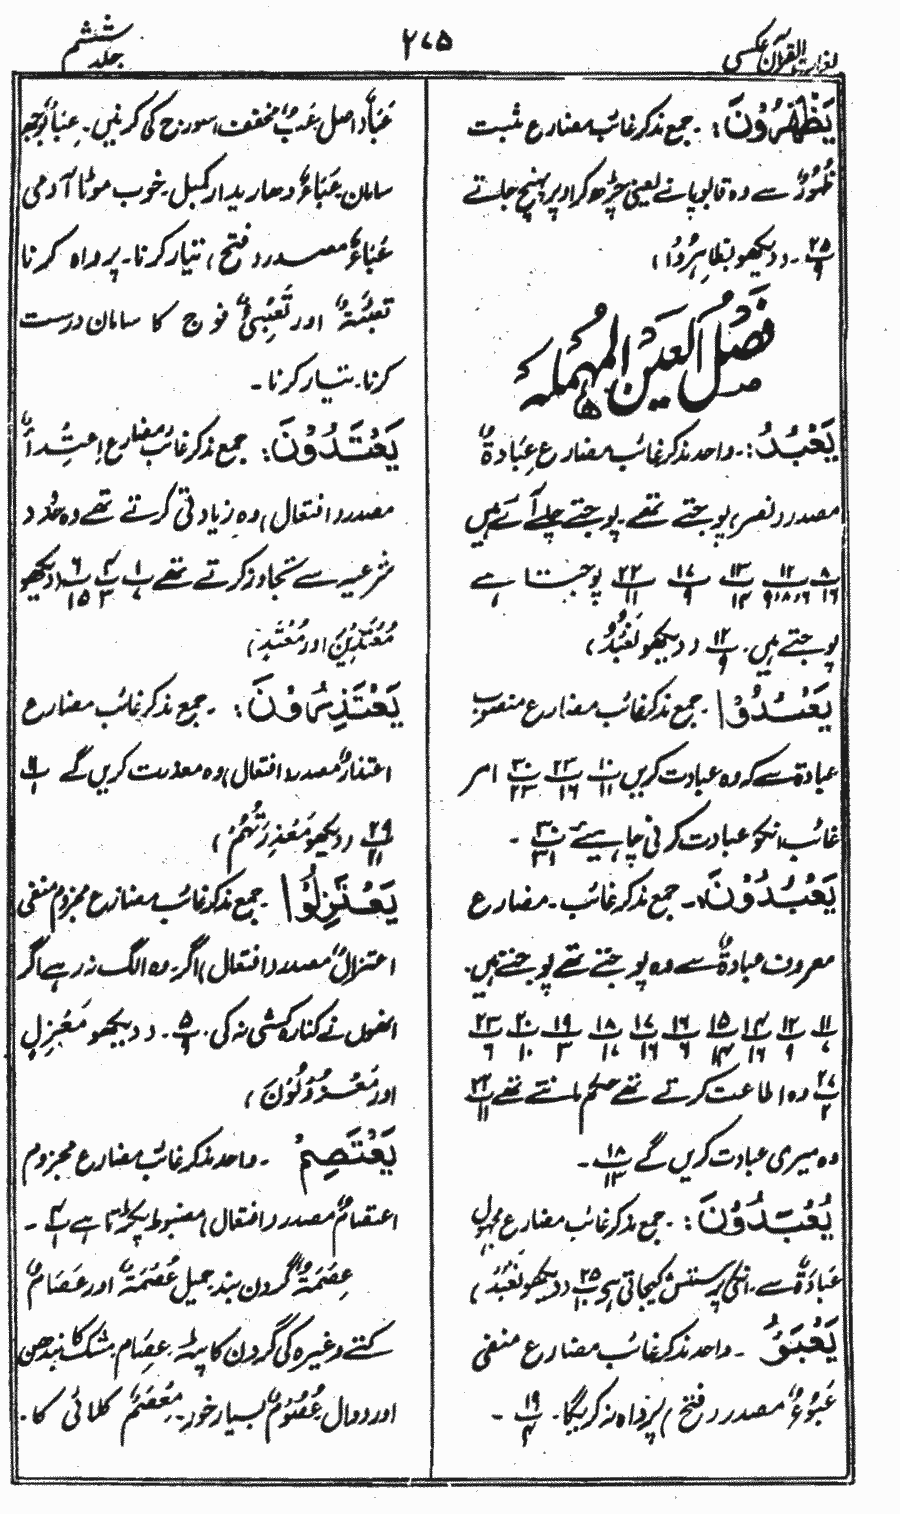 لغات القرآن عکسی
۲۷۵
جلد ششم
يَظْهَرُوْنَ :- جمع مذکر غائب مضارع مثبت
ظُهُوْرٌ سے وہ قابو پاتے یعنی چڑھ کر اوپر پہنچ جاتے
۲۵/۹ - (دیکھو تظاہرون)
فصل العین المہملہ
يَعْبُدُ :- واحد مذکر غائب مضارع عِبَادَةٌ
مصدر (نصر) پوجتے تھے۔ پوجتے چلے آئے ہیں
۸/۱۶ ۱۲/۹،۸،۶ ۱۳/۱۲ ۱۷/۹ ۲۲/۱۱ پوجتا ہے
پوجتے ہیں۔ ۱۲/۹ (دیکھو نَعْبُدُ)
يَعْبُدُوْا :- جمع مذکر غائب مضارع منصوب
عبادة سے کہ وہ عبادت کریں ۱۰/۱۱ ۲۳/۱۶ ۳۰/۲۳ امر
غائب انکو عبادت کرنی چاہیئے ۳۰/۳۱ -
يَعْبُدُوْنَ :- جمع مذکر غائب۔ مضارع
معروف عبادةٌ سے وہ پوجتے تھے پوجتے ہیں۔
۱۱/۷ ۱۲/۹ ۱۴/۱۶ ۱۵/۱۴ ۱۶/۶ ۱۷/۱۶ ۱۸/۱۷ ۱۹/۳ ۲۰/۱۰ ۲۳/۶
۲۷/۲ وہ اطاعت کرتے تھے حکم مانتے تھے ۲۲/۱۱
وہ میری عبادت کریں گے ۱۸/۱۳ -
يُعْبَدُوْنَ :- جمع مذکر غائب مضارع مجہول
عَبَادَةٌ سے۔ انکی پرستش کیجاتی ہو ۲۵/۱۰ (دیکھو نَعْبُدُ)
يَعْبَؤُ - واحد مذکر غائب مضارع منفی
عَبُوْءٌ مصدر (فتح) پرواہ نہ کریگا۔ ۱۹/۴ -
عَبَأٌ اصل عَبٌ مخفف سورج کی کرنیں۔ عِبَاءٌ بوجھ
سامان۔ عَبَاءٌ دھاریدار کمبل۔ خوب موٹا آدمی
عَبَاءٌ مصدر (فتح) تیار کرنا۔ پرواہ کرنا
تعبئۃٌ اور تَعْبِیْئٌ فوج کا سامان درست
کرنا۔ تیار کرنا۔
يَعْتَدُوْنَ :- جمع مذکر غائب مضارع اِعتِداءٌ
مصدر (افتعال) وہ زیادتی کرتے تھے وہ حدود
شرعیہ سے تجاوز کرتے تھے ۱/۷ ۴/۳ ۶/۱۵ (دیکھو
مُعْتَدِیْنَ اور مُعْتَدٍ)
يَعْتَذِرُوْنَ :- جمع مذکر غائب مضارع
اعتذارٌ مصدر (افتعال) وہ معذرت کریں گے ۱۱/۱
۲۹/۲۱ (دیکھو مَعْذِرَتُهُمْ)
يَعْتَزِلُوْا - جمع مذکر غائب مضارع مجزوم منفی
اعتزالٌ مصدر (افتعال) اگر۔ وہ الگ نہ رہے اگر
انھوں نے کنارہ کشی نہ کی۔ ۵/۹ - (دیکھو مَعْزِلٍ
اور مَعْزُوْلُوْنَ)
يَعْتَصِمْ - واحد مذکر غائب مضارع مجزوم
اعتصامٌ مصدر (افتعال) مضبوط پکڑتا ہے ۴/۱ -
عِصَمَةٌ گردن بند جمیل عُصْمَةٌ اور عَصَامٌ
کتے وغیرہ کی گردن کا پٹہ۔ عِصَام مشک کا بندھن
اور دوال عُصُوْمٌ بسیار خور۔ مِعْصَمٌ کلائی کا۔